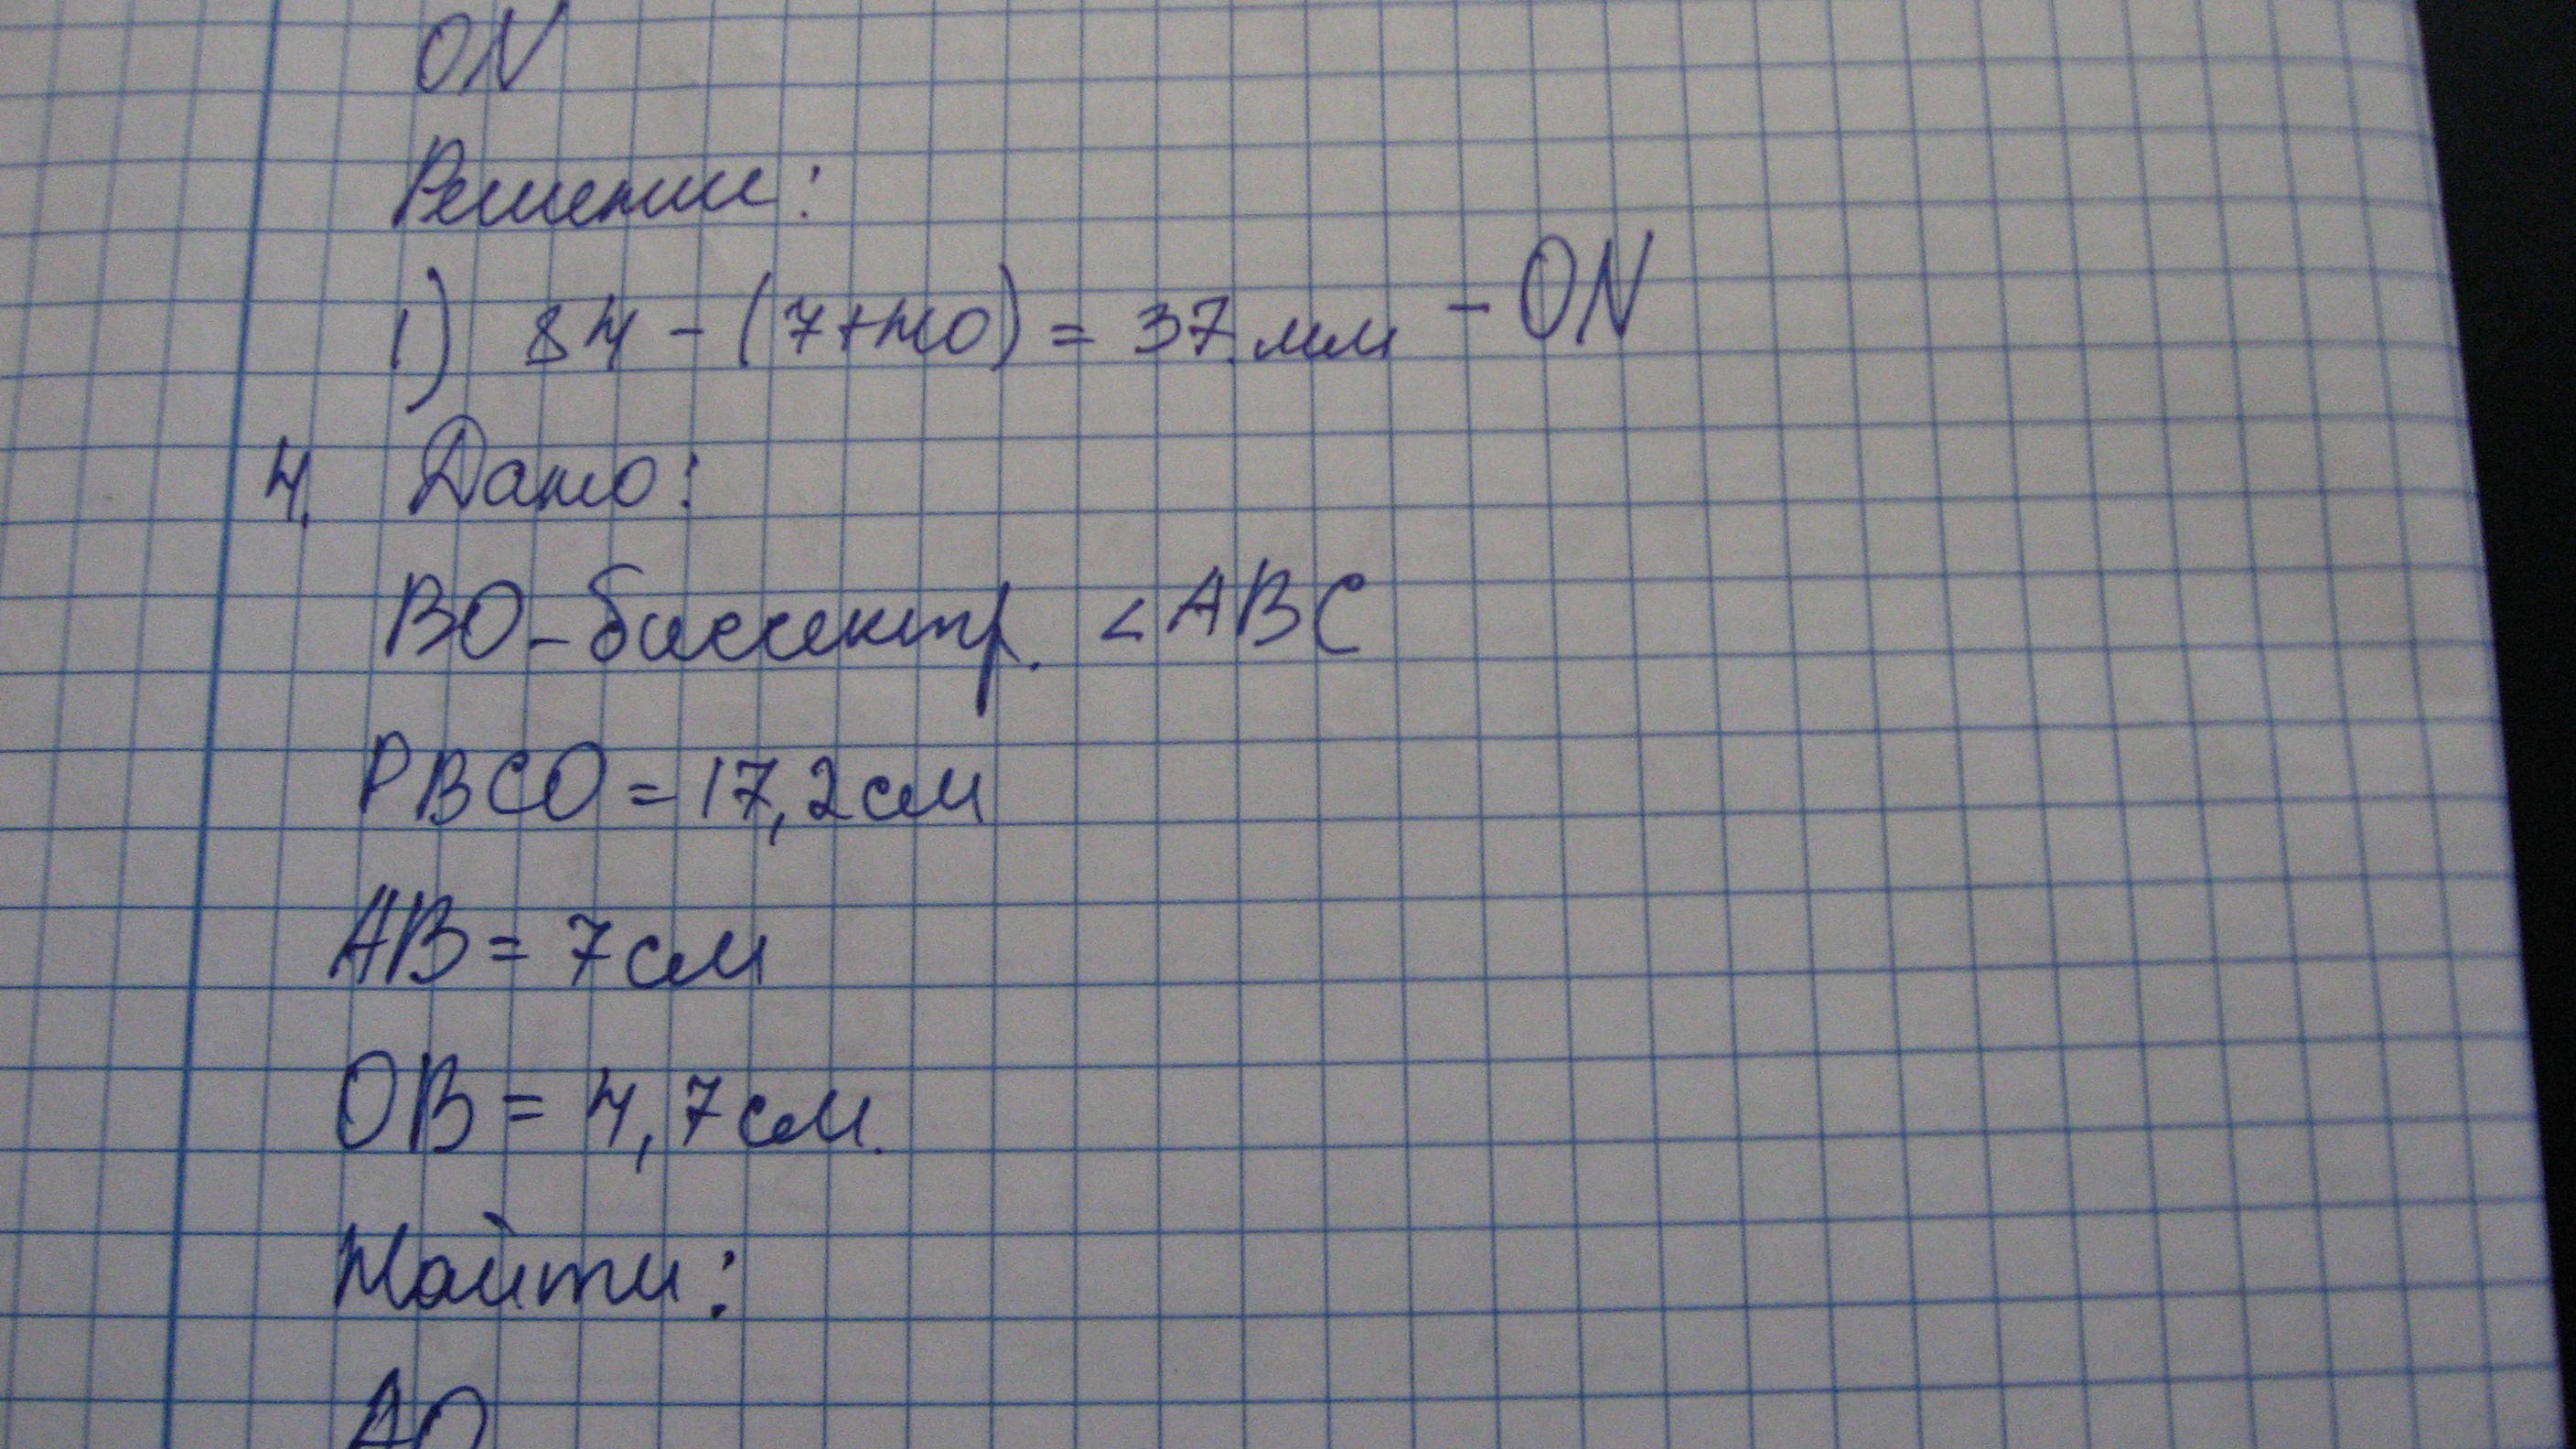 ON
Решение:
1) 84 - (7+40) = 37 мм - ON
4. Дано:
BO - биссектр. <ABC
PBCO = 17,2см
AB = 7см
OB = 4,7см.
Найти:
AO